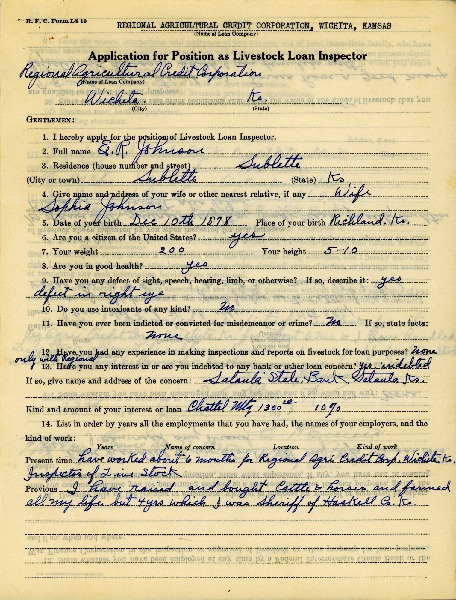 R. F. C. Form LS 10
REGIONAL AGRICULTURAL CREDIT CORPORATION, WICHITA, KANSAS
(Name of Loan Company)
Application for Position as Livestock Loan Inspector
Regional Agricultural Credit Corporation
(Name of Loan Company)
Wichita. Ks.
(City) (State)
GENTLEMEN:
1. I hereby apply for the position of Livestock Loan Inspector.
2. Full name E. R. Johnson
3. Residence (house number and street) Sublette
(City or town) Sublette (State) Ks
4. Give name and address of your wife or other nearest relative, if any Wife
Sophia Johnson
5. Date of your birth Dec 10th 1878 Place of your birth Richland. Ks.
6. Are you a citizen of the United States? yes
7. Your weight 200 Your height 5-10
8. Are you in good health? yes
9. Have you any defect of sight, speech, hearing, limb, or otherwise? If so, describe it: yes
defect in right eye
10. Do you use intoxicants of any kind? no
11. Have you ever been indicted or convicted for misdemeanor or crime? no If so, state facts:
none
12. Have you had any experience in making inspections and reports on livestock for loan purposes? none
only with Regional
13. Have you any interest in or are you indebted to any bank or other loan concern? yes indebted
If so, give name and address of the concern: Satanta State Bank Satanta Ks.
Kind and amount of your interest or loan Chattel Mtg 1300 10%
14. List in order by years all the employments that you have had, the names of your employers, and the
kind of work:
Years Name of concern Location Kind of work
Present time have worked about 6 months for Regional Agri Credit Corp. Wichita Ks.
Inspector of Live Stock
Previous I have raised and bought Cattle & horses and farmed
all my life but 4 yrs which I was Sheriff of Haskell Co. K.